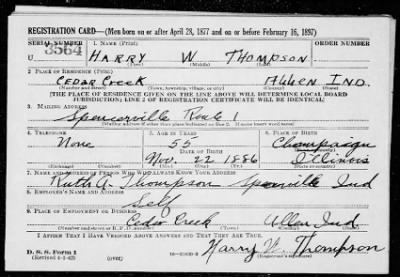 REGISTRATION CARD—(Men born on or after April 28, 1877 and on or before February 16, 1897)
SERIAL NUMBER 1. NAME (Print)
U 3564 HARRY W THOMPSON
(First) (Middle) (Last)
2. PLACE OF RESIDENCE (Print)
Cedar Creek Allen Ind.
(Number and street) (Town, township, village, or city) (County) (State)
[THE PLACE OF RESIDENCE GIVEN ON THE LINE ABOVE WILL DETERMINE LOCAL BOARD
JURISDICTION; LINE 2 OF REGISTRATION CERTIFICATE WILL BE IDENTICAL]
3. MAILING ADDRESS
Spencerville Route 1
[Mailing address if other than place indicated on line 2. If same insert word same]
4. TELEPHONE 5. AGE IN YEARS 6. PLACE OF BIRTH
None 55 Champaign
DATE OF BIRTH (Town or county)
Nov. 22 1886 Illinois
(Exchange) (Number) (Mo.) (Day) (Yr.) (State or country)
7. NAME AND ADDRESS OF PERSON WHO WILL ALWAYS KNOW YOUR ADDRESS
Ruth A. Thompson Ind
8. EMPLOYER'S NAME AND ADDRESS
Self
9. PLACE OF EMPLOYMENT OR BUSINESS
Cedar Creek Allen Ind
(Number and street or R. F. D. number) (Town) (County) (State)
I AFFIRM THAT I HAVE VERIFIED ABOVE ANSWERS AND THAT THEY ARE TRUE.
D. S. S. Form 1 Harry W. Thompson
(Revised 4-1-42) (over) (Registrant's signature)